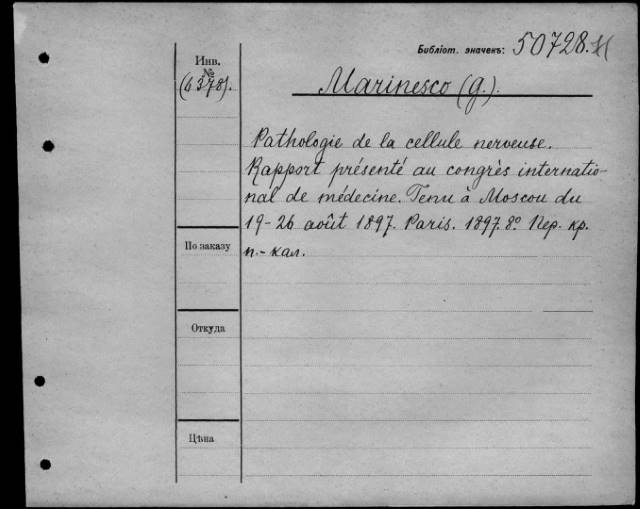 Библіот. значекъ: 50728.
Инв.
№
(6378).
Marinesco (G.).
Pathologie de la cellule nerveuse.
Rapport présenté au congrès internatio-
nal de médecine. Tenu à Moscou du
19-26 août 1897. Paris. 1897. 8º. Пер. кр.
п.-кал.
По заказу
Откуда
Цѣна